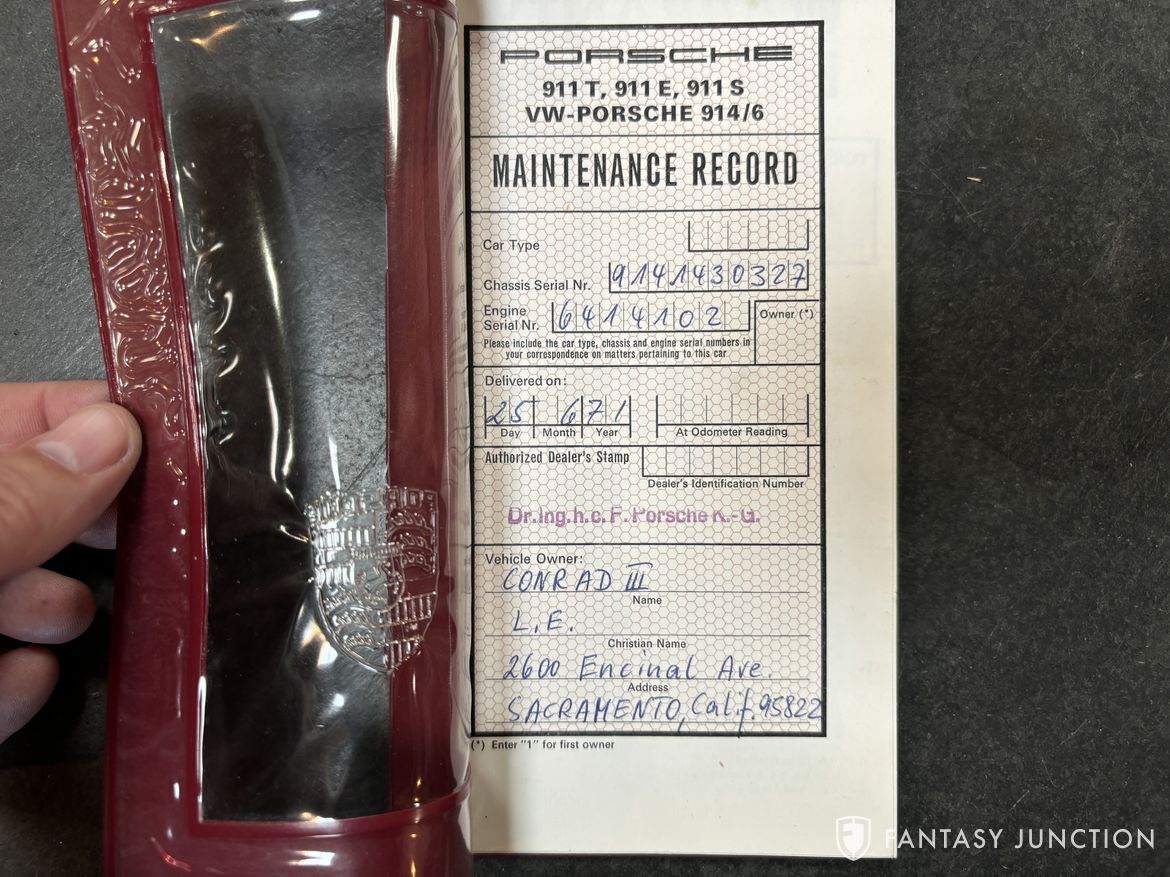 PORSCHE
911 T, 911 E, 911 S
VW-PORSCHE 914/6
MAINTENANCE RECORD
Car Type
Chassis Serial Nr. 9141430327
Engine Serial Nr. 6414102
Owner (*)
Please include the car type, chassis and engine serial numbers in
your correspondence on matters pertaining to this car
Delivered on:
25 6 71
Day Month Year At Odometer Reading
Authorized Dealer's Stamp
Dealer's Identification Number
Dr.Ing.h.c.F.Porsche K.-G.
Vehicle Owner:
CONRAD III
Name
L.E.
Christian Name
2600 Encinal Ave.
Address
SACRAMENTO, Calif. 95822
(*) Enter "1" for first owner
FANTASY JUNCTION